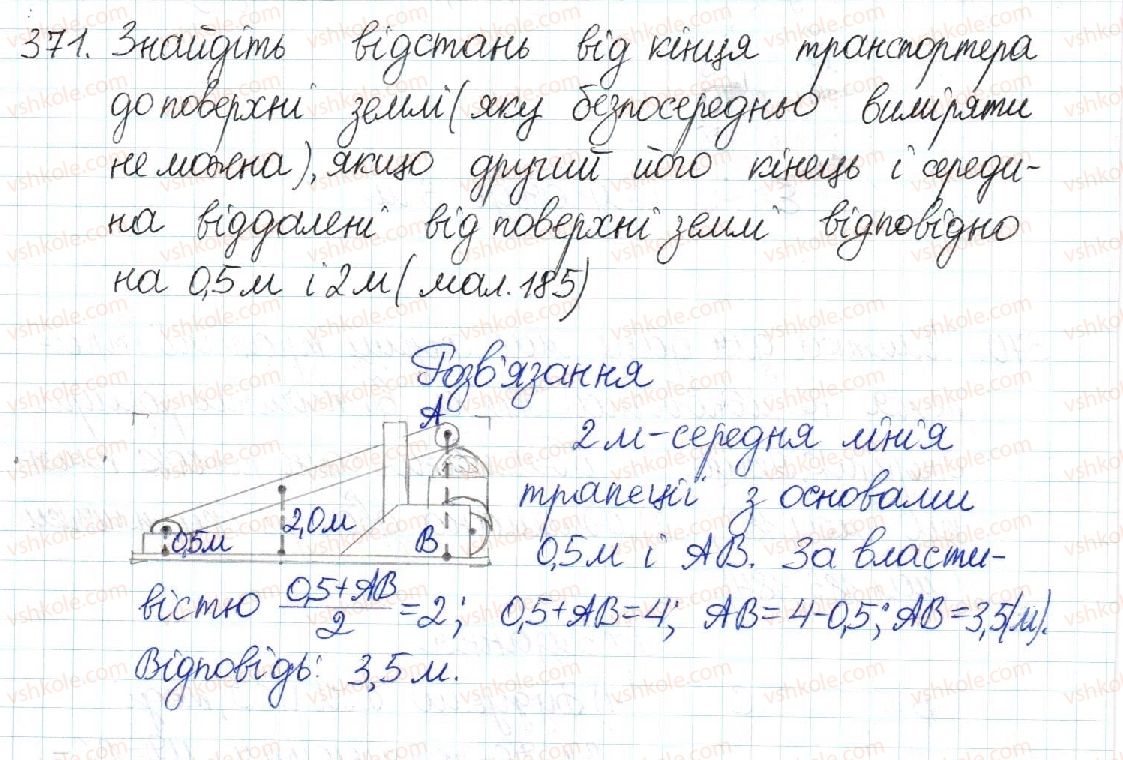 371. Знайдіть відстань від кінця транспортера
до поверхні землі (яку безпосередньо виміряти
не можна), якщо другий його кінець і середи-
на віддалені від поверхні землі відповідно
на 0,5 м і 2 м (мал. 185)
Розв'язання
A
2 м - середня лінія
трапеції з основами
0,5м
2,0м
B
0,5 м і AB. За власти-
вістю (0,5+AB)/2 = 2; 0,5+AB=4; AB=4-0,5; AB=3,5(м).
Відповідь: 3,5 м.